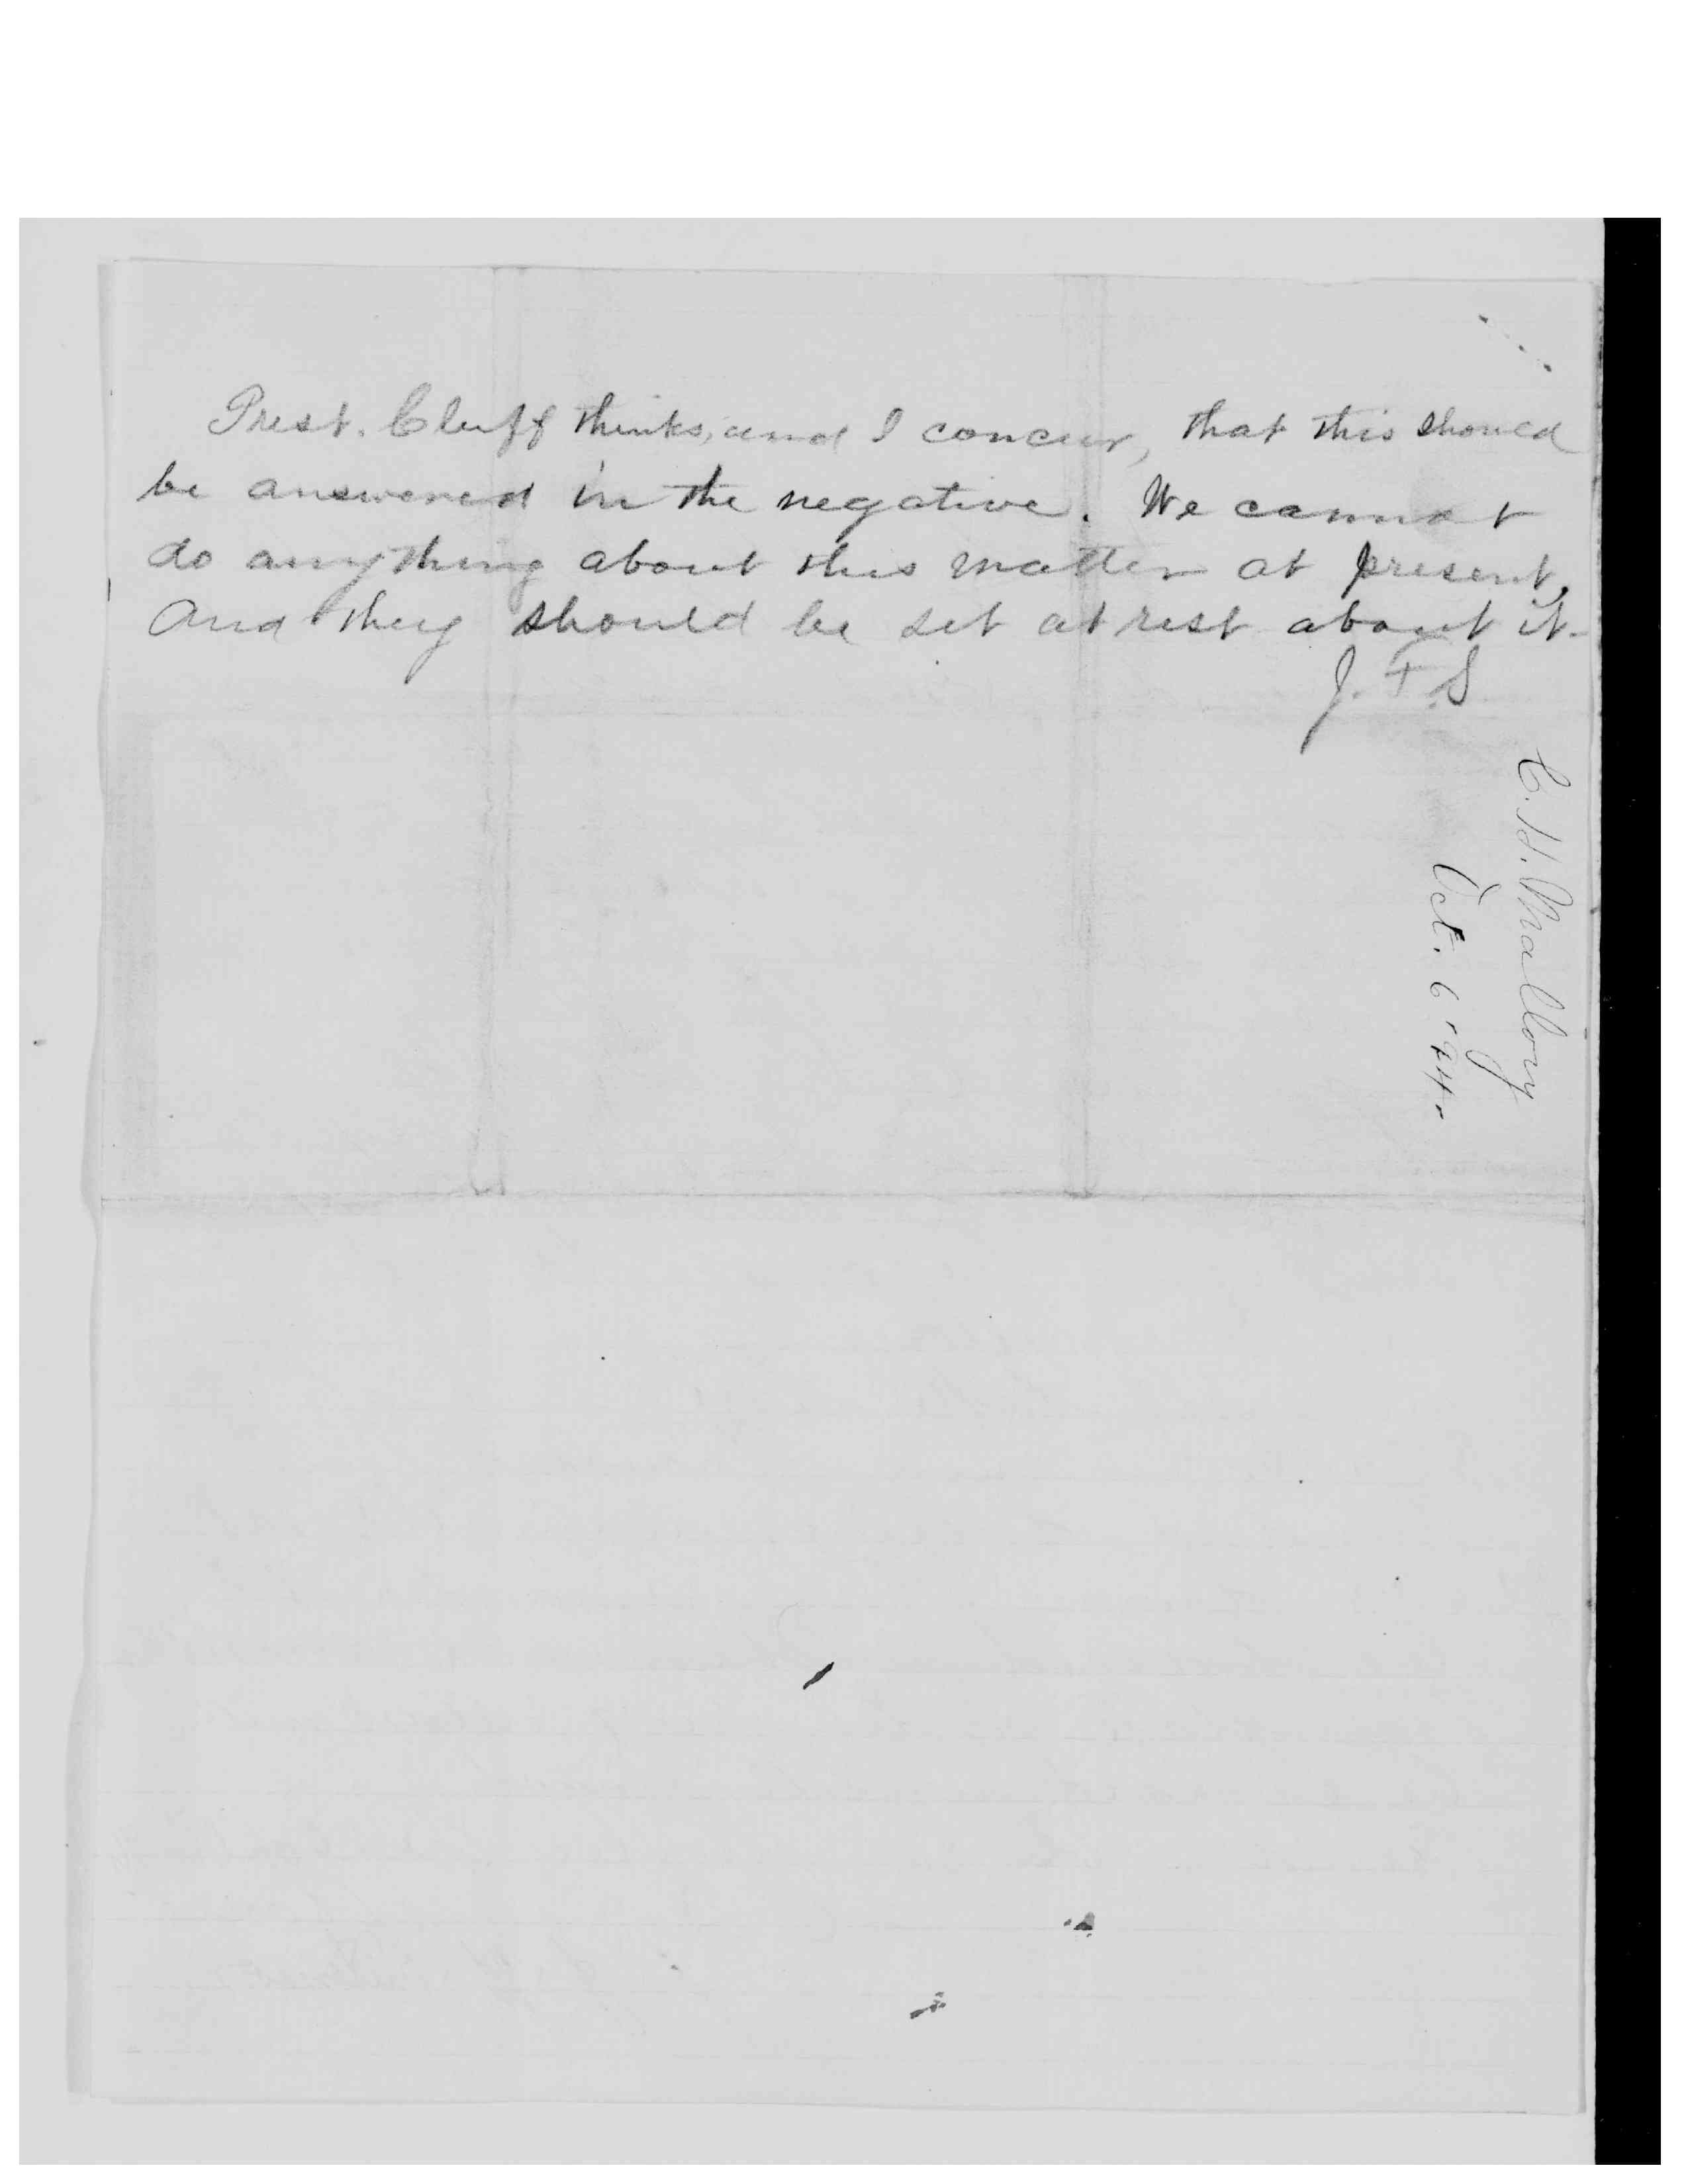 Prest. Cluff thinks, and I concur, that this should
be answered in the negative. We cannot
do anything about this matter at present,
and they should be set at rest about it.
J. F. S
C. H. Mallory
Oct. 6 '94.